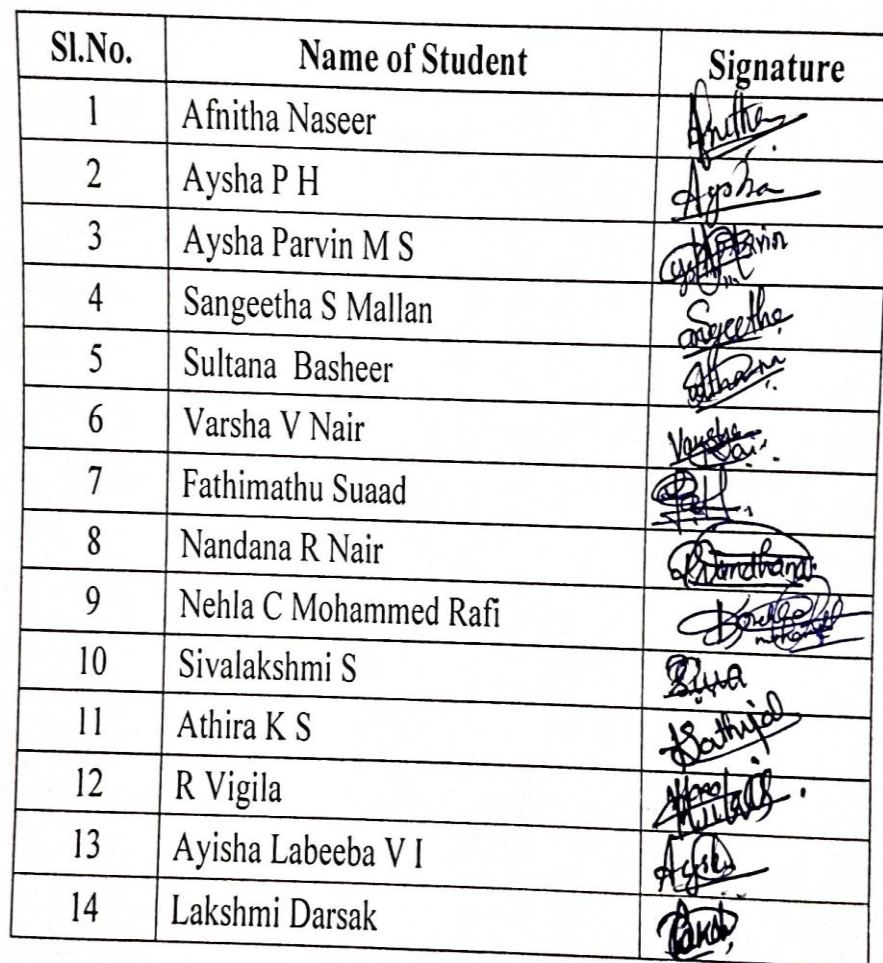 Sl.No. Name of Student Signature
1 Afnitha Naseer
2 Aysha P H Aysha
3 Aysha Parvin M S
4 Sangeetha S Mallan Sangeetha
5 Sultana Basheer
6 Varsha V Nair Varsha
7 Fathimathu Suaad
8 Nandana R Nair
9 Nehla C Mohammed Rafi
10 Sivalakshmi S
11 Athira K S
12 R Vigila
13 Ayisha Labeeba V I
14 Lakshmi Darsak